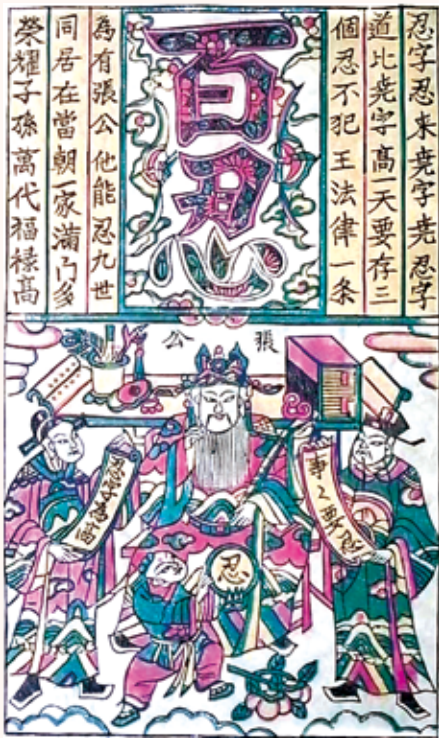 忍字忍来堯字堯忍字
道比堯字高一天要存三
個忍不犯王法律一条
百忍
為有張公他能忍九世
同居在當朝一家滿门多
榮耀子孫萬代福祿高
張公
忍字為
忍